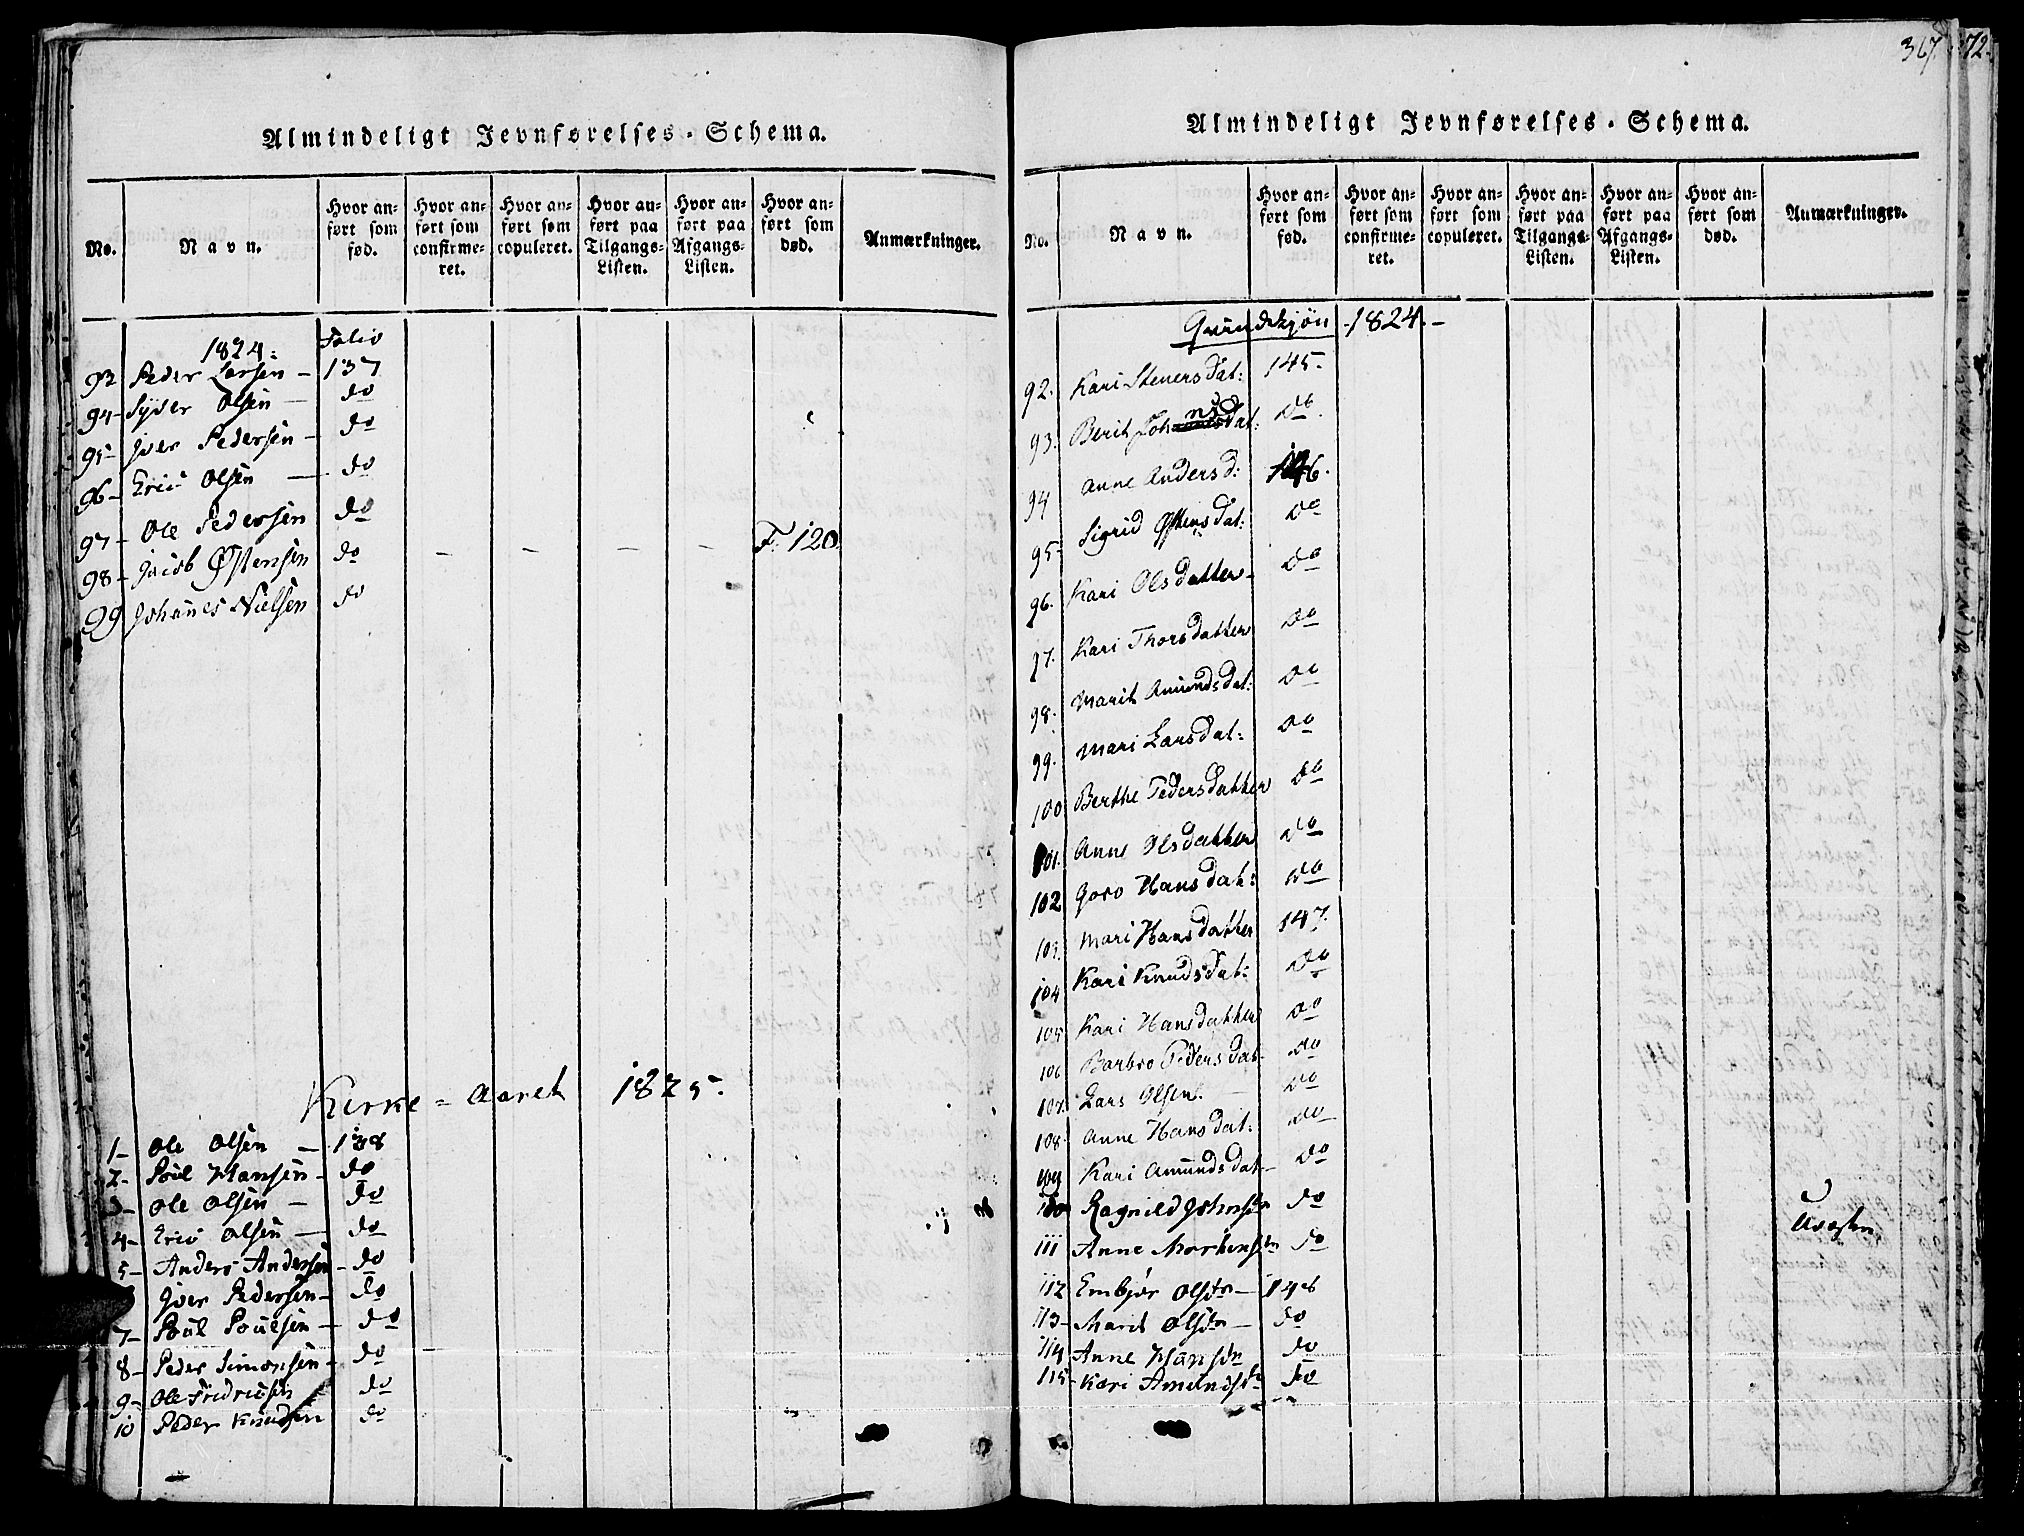 Almindeligt Jevnførelses-Schema.
No. Navn. Hvor anført som fød. Hvor anført som confirmeret. Hvor anført som copuleret. Hvor anført paa Tilgangs-Listen. Hvor anført paa Afgangs-Listen. Hvor anført som død. Anmærkninger.
1824: Folio
93 Peder Larsen - 137
94 - Syver Olsen - do
95 Iver Pedersen - do
96 - Eric Olsen - do
97 - Ole Pedersen do
98 - Jacob Østensen do - - - - F. 120
99 Johanes Nielsen do
Kirke = Aaret 1825.
1 - Ole Olsen - 138
2 - Poul Hansen - do
3 - Ole Olsen - do
4 - Eric Olsen - do
5 - Anders Andersen - do
Iver Pedersen - do
7 - Poul Poulsen - do
8 - Peder Simonsen - do
9 - Ole Fridricsen do
10 Peder Knudsen do
367. 72.
Almindeligt Jevnførelses-Schema.
No. Navn. Hvor anført som fød. Hvor anført som confirmeret. Hvor anført som copuleret. Hvor anført paa Tilgangs-Listen. Hvor anført paa Afgangs-Listen. Hvor anført som død. Anmærkninger.
Qvindekjøn - 1824. -
92. Kari Stenersdat: 145.
93. Berit Johnsd Do.
94 Anne Andersd: 146.
95. Sigrid Østensdat: Do
96. Kari Olsdatter - Do
97. Kari Thorsdatter Do
98. Marit Amundsdat: Do
99. Mari Larsdat: Do
100 Berthe Pedersdatter Do
101. Anne Olsdatter Do
102 Goro Hansdat: Do
103. Mari Hansdatter 147.
104 Kari Knudsdat: Do
105. Kari Hansdatter Do
106 Barbro Pedersdat. Do
107. Lars Olsen. - Do
108. Anne Hansdat: Do
109 Kari Amundsdat - Do
110 Ragnild Johnsdr do
111 Anne Mortensdr do
112 Embjør Olsdr - 148
113 - Marit Olsdr - do
114 Anne Hansdr do
115 - Kari Amundsdr do